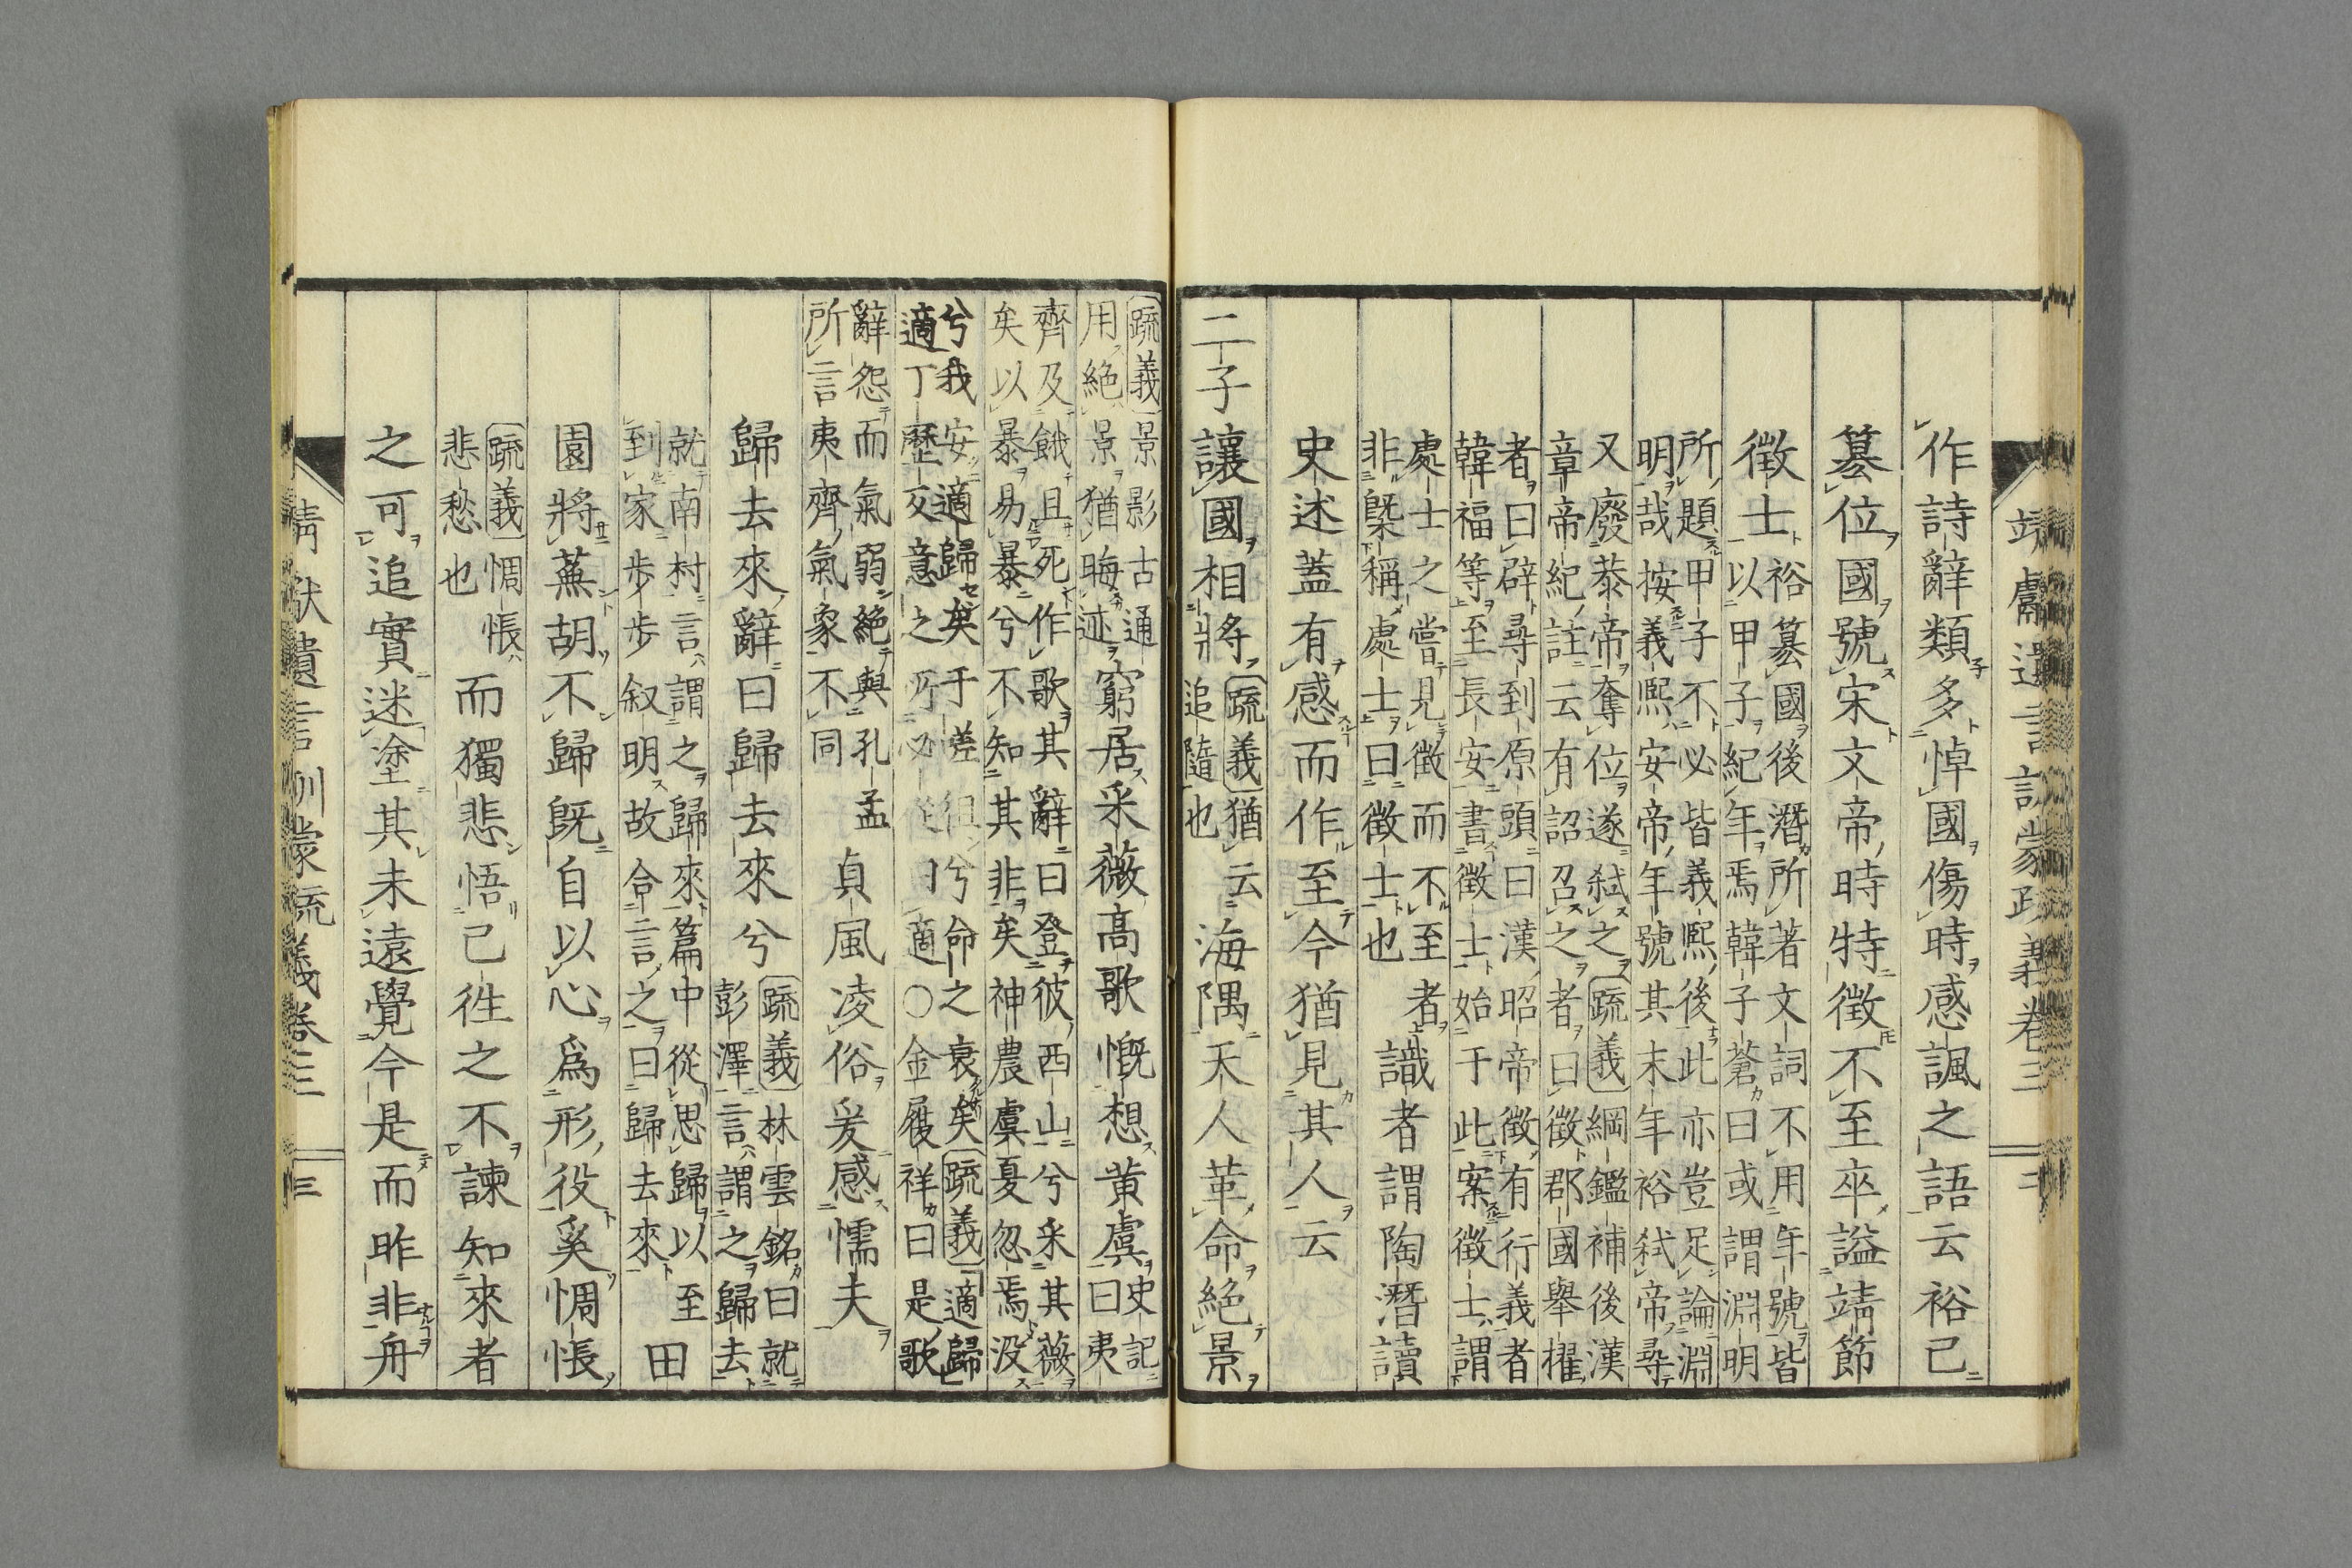 靖獻遺言訓蒙疏義卷三
作詩辭類多悼國傷時感諷之語云裕已
簒位國號宋文帝時特徵不至卒謚靖節
徵士
裕簒國後潛所著文詞不用年號皆
以甲子紀年焉韓子蒼曰或謂淵明
所題甲子不必皆義熙後此亦豈足論淵
明哉按義熙安帝年號其末年裕弑帝尋
又廢恭帝奪位遂弑之〔疏義〕綱鑑補後漢
章帝紀註云有詔召之者曰徵郡國舉擢
者曰辟尋到原頭曰漢昭帝徵有行義者
韓福等至長安書徵士始于此案徵士謂
處士之嘗見徵而不至者
非槩稱處士曰徵士也
識者謂陶潛讀
史述蓋有感而作至今猶見其人云
二子讓國相將
〔疏義〕猶云
追隨也
海隅天人革命絕景
〔疏義〕景影古通
用絕景猶晦迹
窮居采薇高歌慨想黃虞
史記
曰夷
齊及餓且死作歌其辭曰登彼西山兮采其薇
矣以暴易暴兮不知其非矣神農虞夏忽焉沒
兮我安適歸矣于嗟徂兮命之衰矣〔疏義〕適歸
適丁歷反意之所必從曰適○金履祥曰是歌
辭怨而氣弱絕與孔孟
所言夷齊氣象不同
貞風凌俗爰感懦夫
歸去來辭曰歸去來兮
〔疏義〕林雲銘曰就
彭澤言謂之歸去
就南村言謂之歸來篇中從思歸以至
到家步步叙明故合言之曰歸去來
田
園將蕪胡不歸既自以心爲形役奚惆悵
〔疏義〕惆悵
悲愁也
而獨悲悟已徃之不諫知來者
之可追實迷塗其未遠覺今是而昨非舟
靖獻遺言訓蒙疏義卷三
三